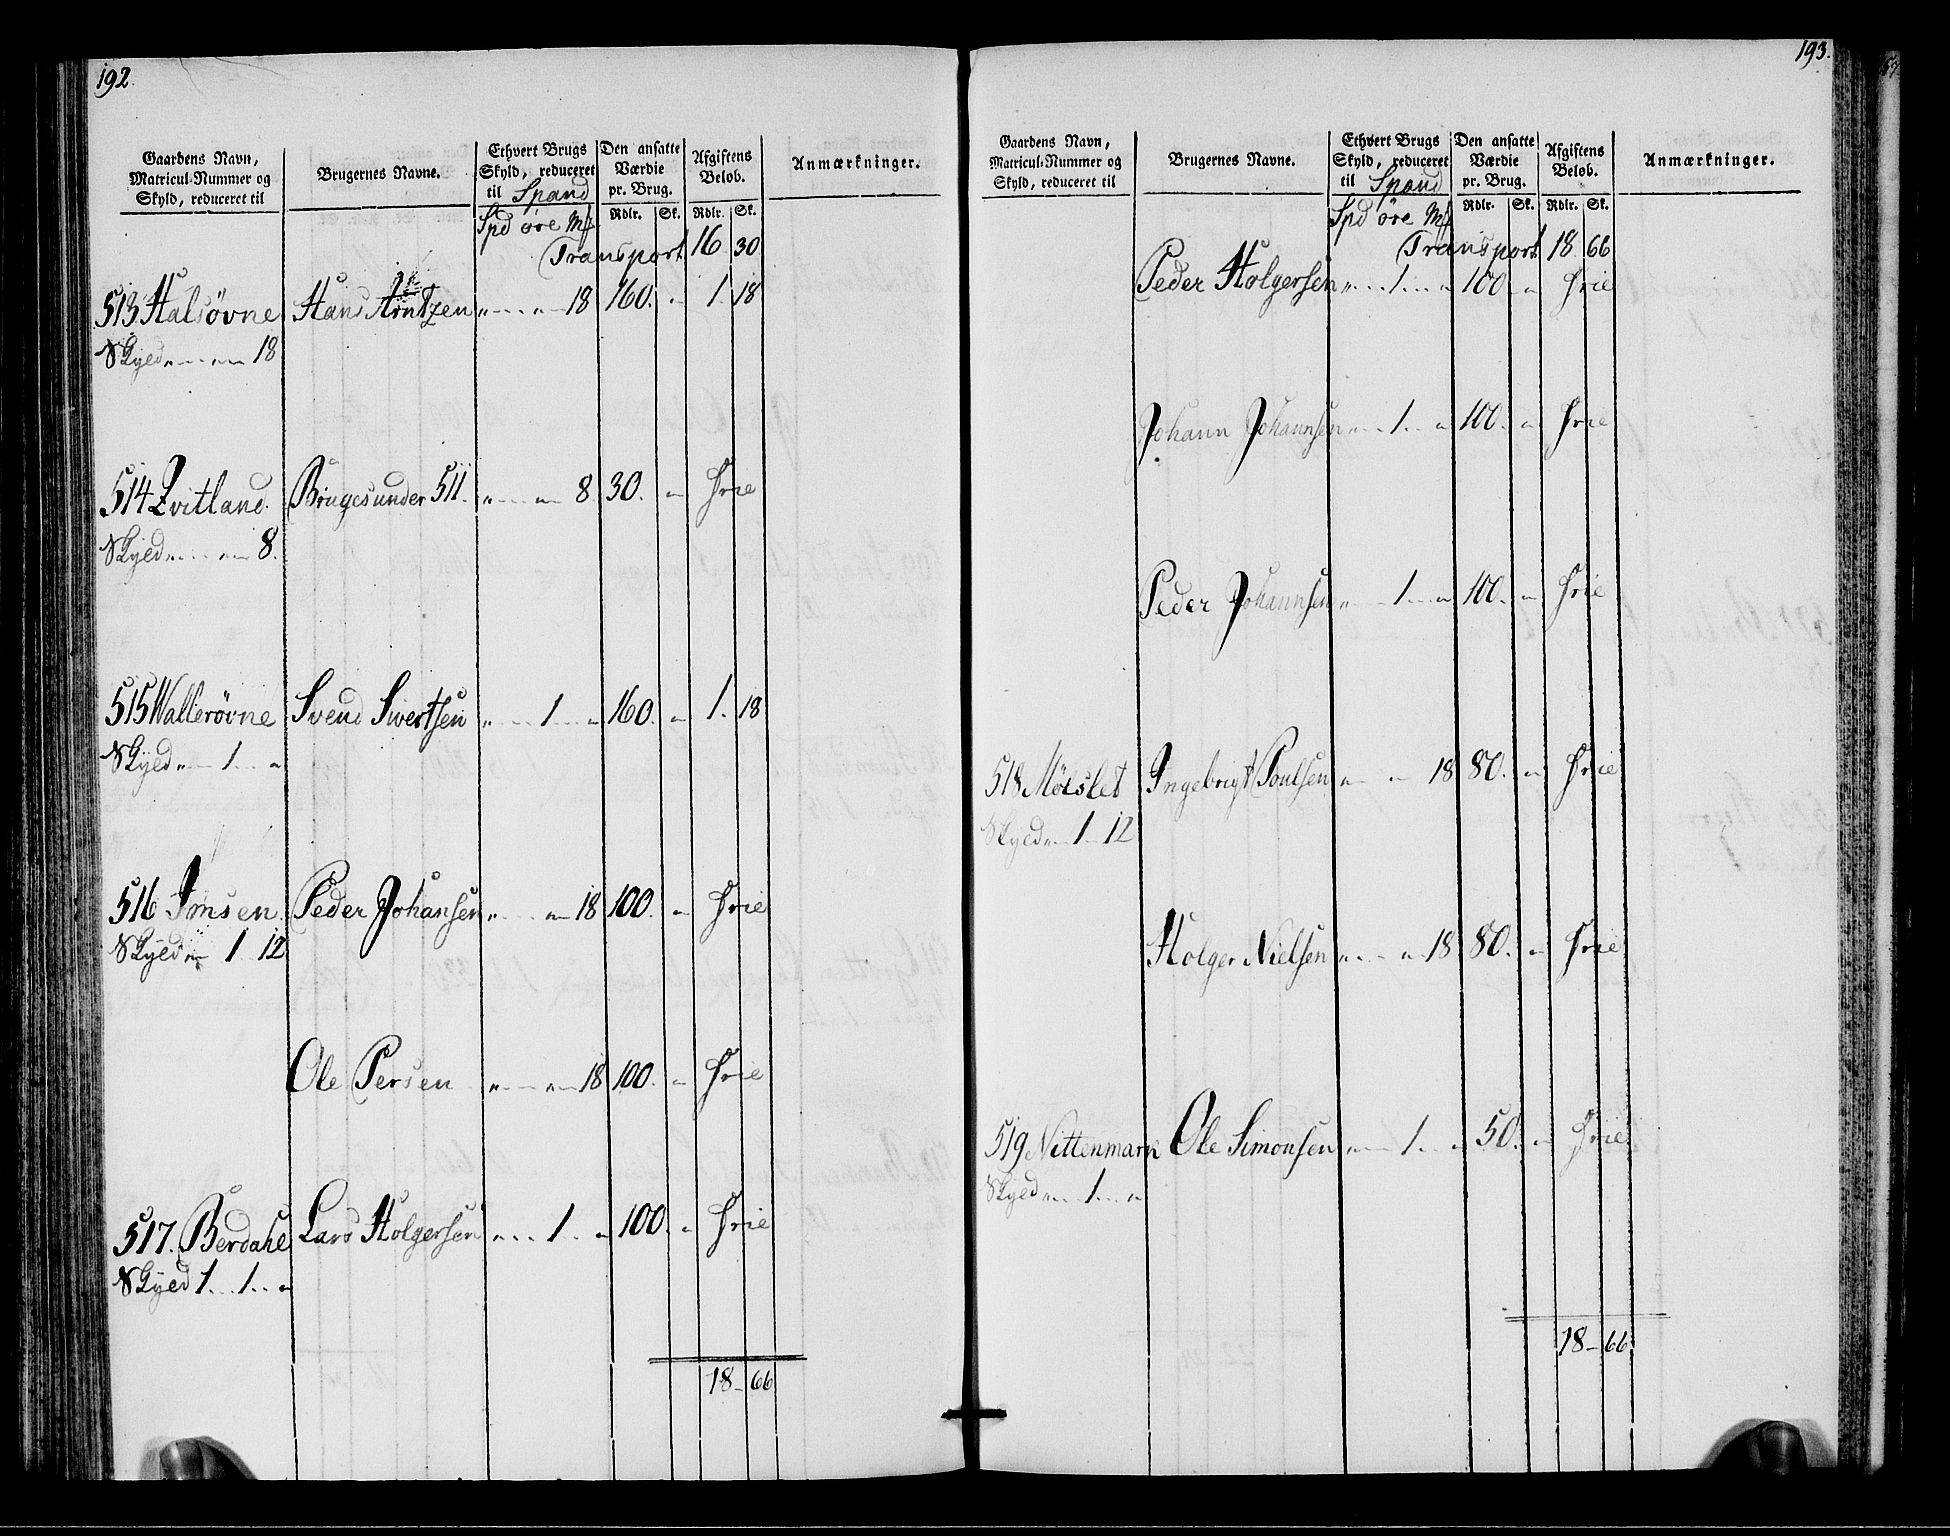 192.
Gaardens Navn, Matricul-Nummer og Skyld, reduceret til
Brugernes Navne.
Ethvert Brugs Skyld, reduceret til Spand
Den ansatte Værdie pr. Brug.
Afgiftens Beløb.
Anmærkninger.
Spd øre Mf Rdlr. Sk. Rdlr. Sk.
Transport 16 30
513 Halsøvne Hans Arntzen " " 18 160. " 1. 18
Skyld " " 18
514 Qvitland. Bruges under 511. " " 8 30. " Frie
Skyld " " 8.
515 Wallerøvne Svend Sivertsen " 1 " 160. " 1. 18
Skyld " 1 "
516 Imsen Peder Johansen " " 18 100. " Frie
Skyld " 1 12
Ole Persen " " 18 100. " Frie
517. Berdahl Lars Holgersen " 1 " 100. " Frie
Skyld 1 1 "
18 - 66
193.
Gaardens Navn, Matricul-Nummer og Skyld, reduceret til
Brugernes Navne.
Ethvert Brugs Skyld, reduceret til Spand
Den ansatte Værdie pr. Brug.
Afgiftens Beløb.
Anmærkninger.
Spd øre Mf Rdlr. Sk. Rdlr. Sk.
Transport 18 66
Peder Holgersen " 1 " 100 " Frie
Johann Johannsen " 1 " 100. " Frie
Peder Johannsen " 1 " 100. " Frie
518 Møeslet Ingebrigt Poulsen " " 18 80. " Frie
Skyld " 1 12
Holger Nielsen " " 18 80. " Frie
519 Nittenmark Ole Simonsen " 1 " 50. " Frie
Skyld " 1 "
18 - 66.